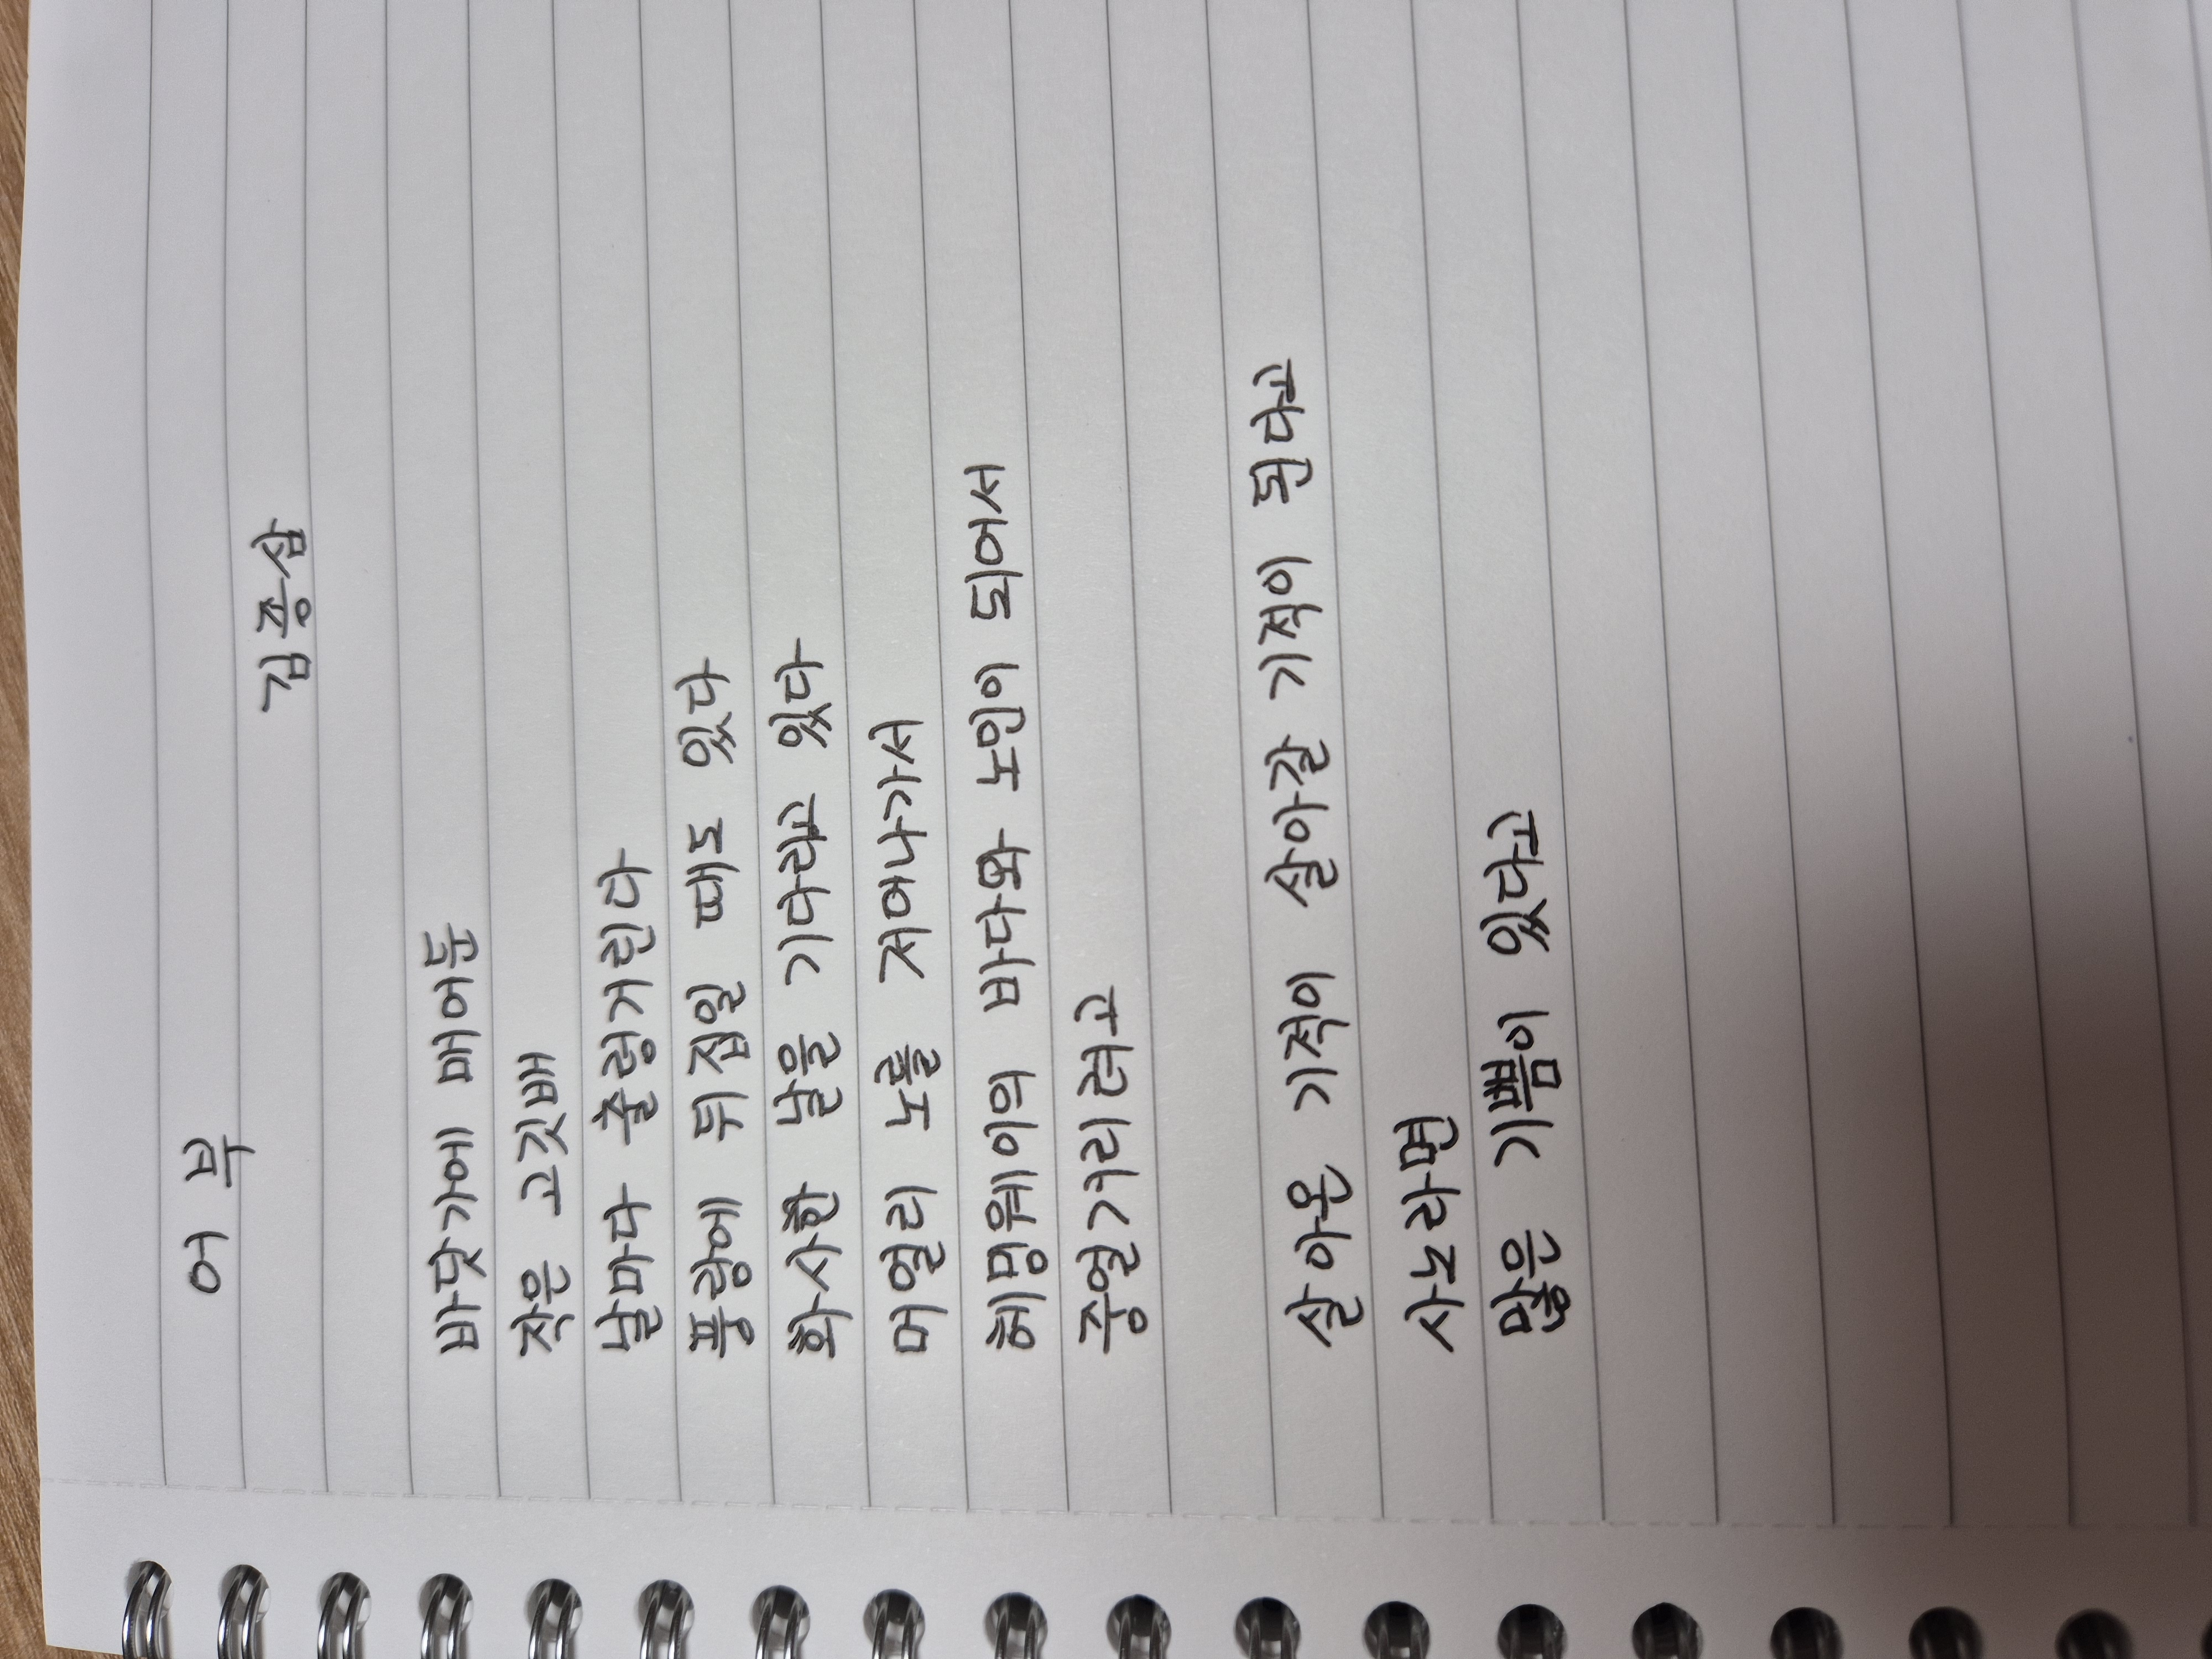 어 부
김종삼
바닷가에 매어둔
작은 고깃배
날마다 출렁거린다
풍랑에 뒤집일 때도 있다
화사한 날을 기다리고 있다
머얼리 노를 저어나가서
헤밍웨이의 바다와 노인이 되어서
중얼거리려고
살아온 기적이 살아갈 기적이 된다고
사노라면
많은 기쁨이 있다고